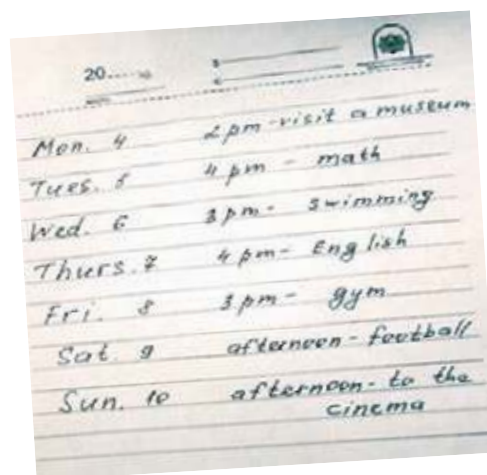 20.....
Mon. 4 2 pm - visit a museum
Tues. 5 4 pm - math
Wed. 6 3 pm - swimming
Thurs. 7 4 pm - English
Fri. 8 3 pm - gym
Sat. 9 afternoon - football
Sun. 10 afternoon - to the
cinema